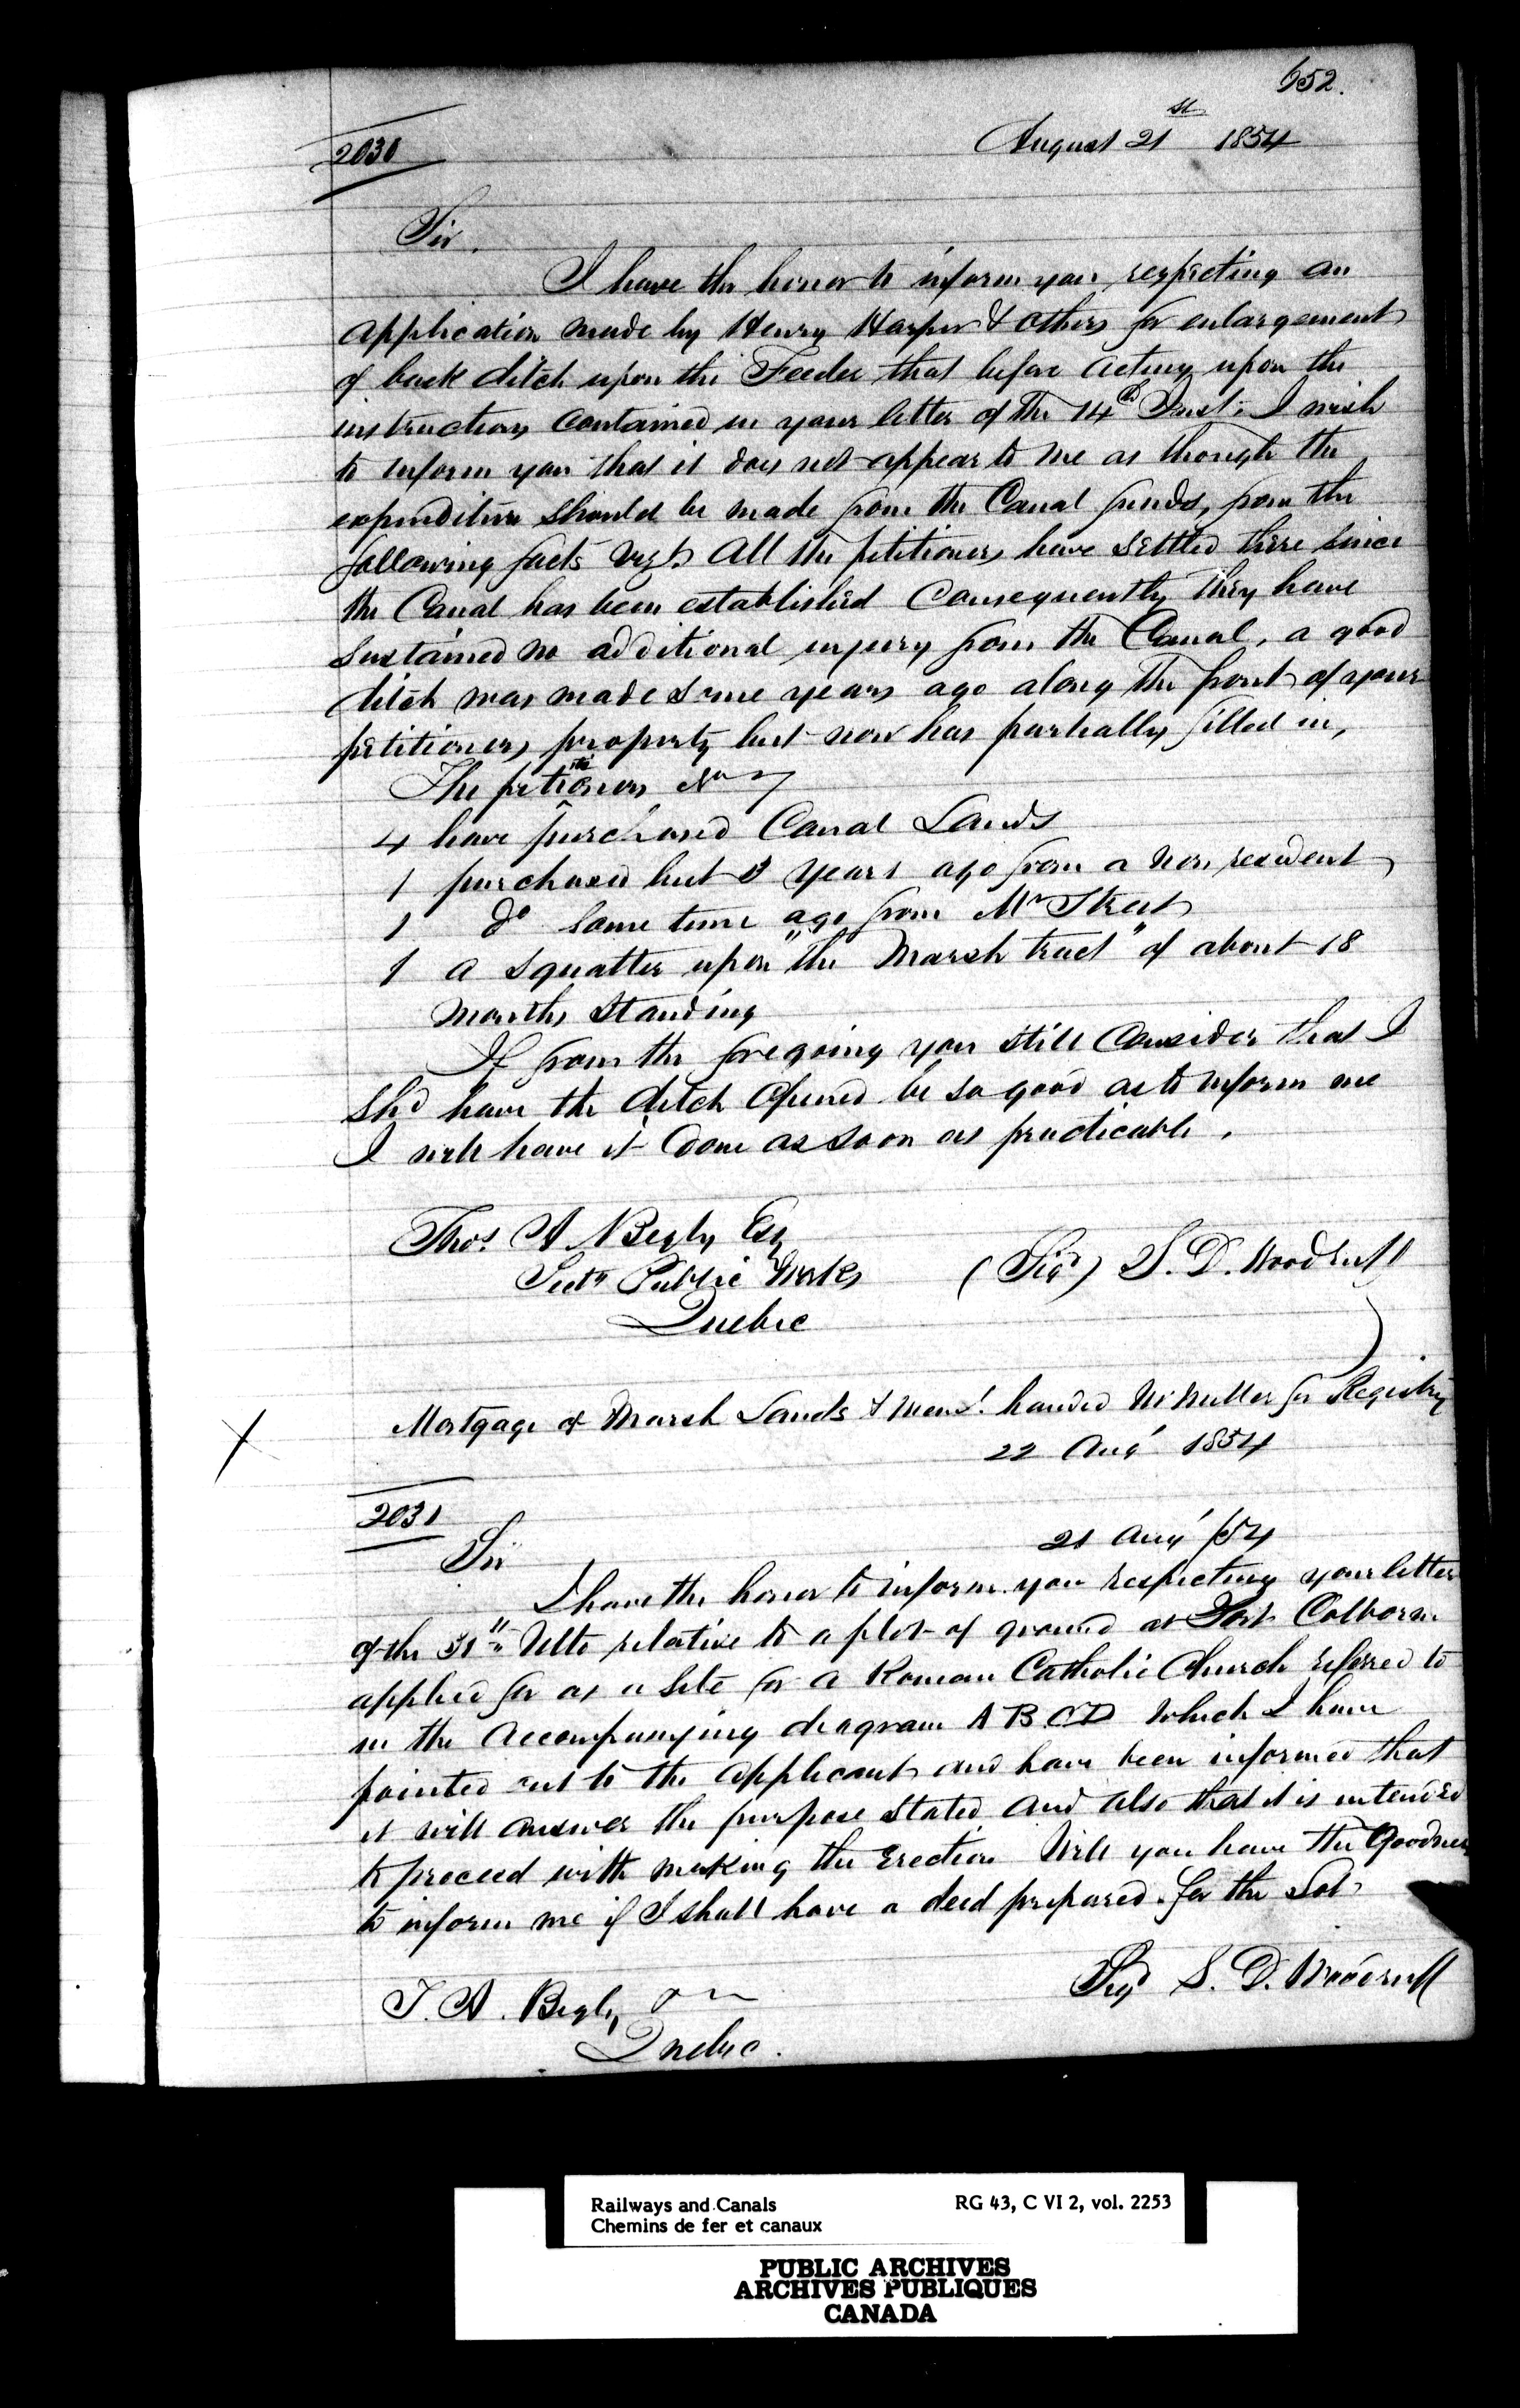 652.
August 21st 1854
2030
Sir.
I have the honor to inform you respecting an
application made by Henry Harper & others for enlargement
of back ditch upon the Feeder that before acting upon the
instructions contained in your letter of the 14th Inst. I wish
to inform you that it does not appear to me as though the
expenditure should be made from the Canal funds, from the
following facts vizt. All the petitioners have settled there since
the Canal has been established Consequently they have
sustained no additional injury from the Canal, a good
ditch was made some years ago along the front of your
petitioners property but now has partially filled in,
The petitioners No 7
4 have purchased Canal Lands
1 purchased but 3 years ago from a non resident
1 do some time ago from Mr Street
1 a squatter upon "the Marsh tract" of about 18
months standing
If from the foregoing you still Consider that I
shd have the ditch opened be so good as to inform me
I will have it done as soon as practicable.
Thos. A Begly Esq
Secty Public Works
(Sigd) S. D. Woodruff
Quebec
Mortgage of Marsh Lands & handed for Registry
22 Augt 1854
2031
21 Augt /54
Sir
I have the honor to inform you respecting your letter
of the 31st Ulto relative to a plot of ground at Port Colborne
applied for as a site for a Roman Catholic Church referred to
in the accompanying diagram A B C D which I have
pointed out to the applicants and have been informed that
it will answer the purpose stated and also that it is intended
to proceed with making the erection Will you have the Goodness
to inform me if I shall have a deed prepared for the Lot
Sigd S. D. Woodruff
T. A. Begly
Quebec.
Railways and Canals
Chemins de fer et canaux
RG 43, C VI 2, vol. 2253
PUBLIC ARCHIVES
ARCHIVES PUBLIQUES
CANADA